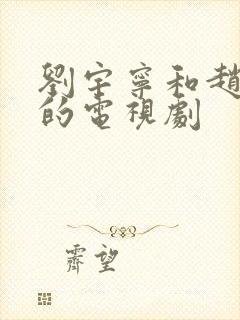 劉宇寧和趙
的電視劇
霽望